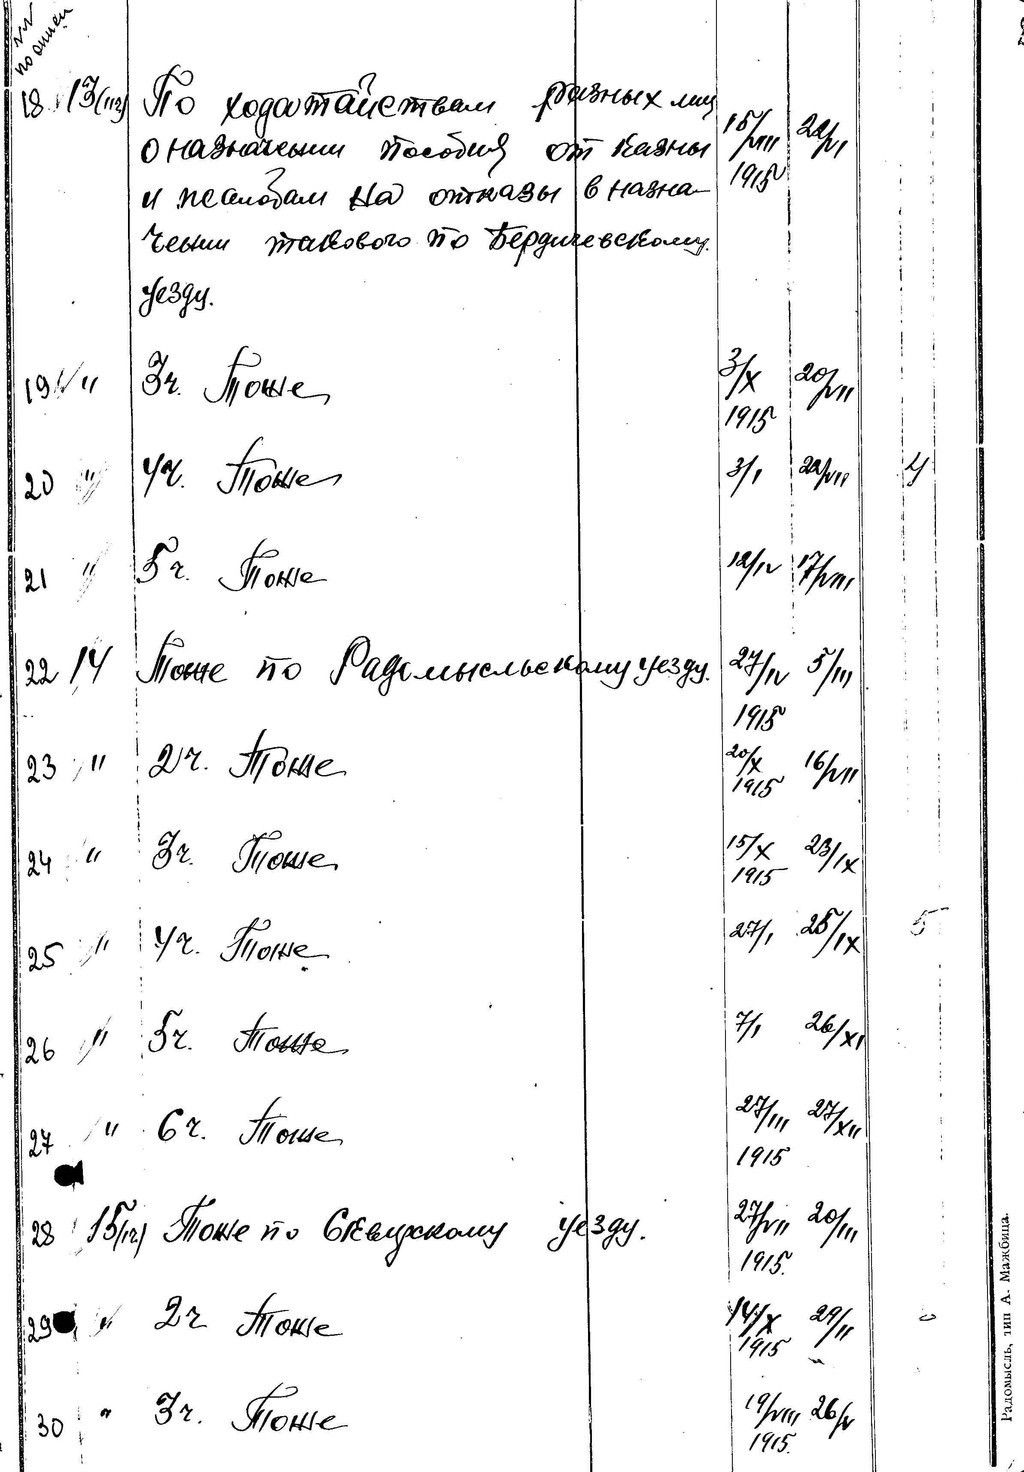 по описи
18 13(IIч) По ходатайствам разных лиц 15/VIII 22/VI
о назначении пособия от казны 1915
и жалобам на отказы в назна-
чении такового по Бердичевскому
уезду.
19 " 3ч. Тоже 3/X 20/VII
1915
20 " 4ч. Тоже 3/I 22/VII 4
21 " 5ч. Тоже 12/IV 17/VIII
22 14 Тоже по Радомысльскому уезду. 27/IV 5/III
1915
23 " 2ч. Тоже 20/X 16/VII
1915
24 " 3ч. Тоже 15/X 23/IX
1915
25 " 4ч. Тоже 27/I 25/IX 5
26 " 5ч. Тоже 7/I 26/XI
27 " 6ч. Тоже 27/III 27/XII
1915
28 15(Iч) Тоже по Сквирскому уезду. 27/VII 20/III
1915.
29 " 2ч Тоже 14/X 29/II
1915
30 " 3ч. Тоже 19/VIII 26/V
1915.
Радомысль, тип А. Мажбица.